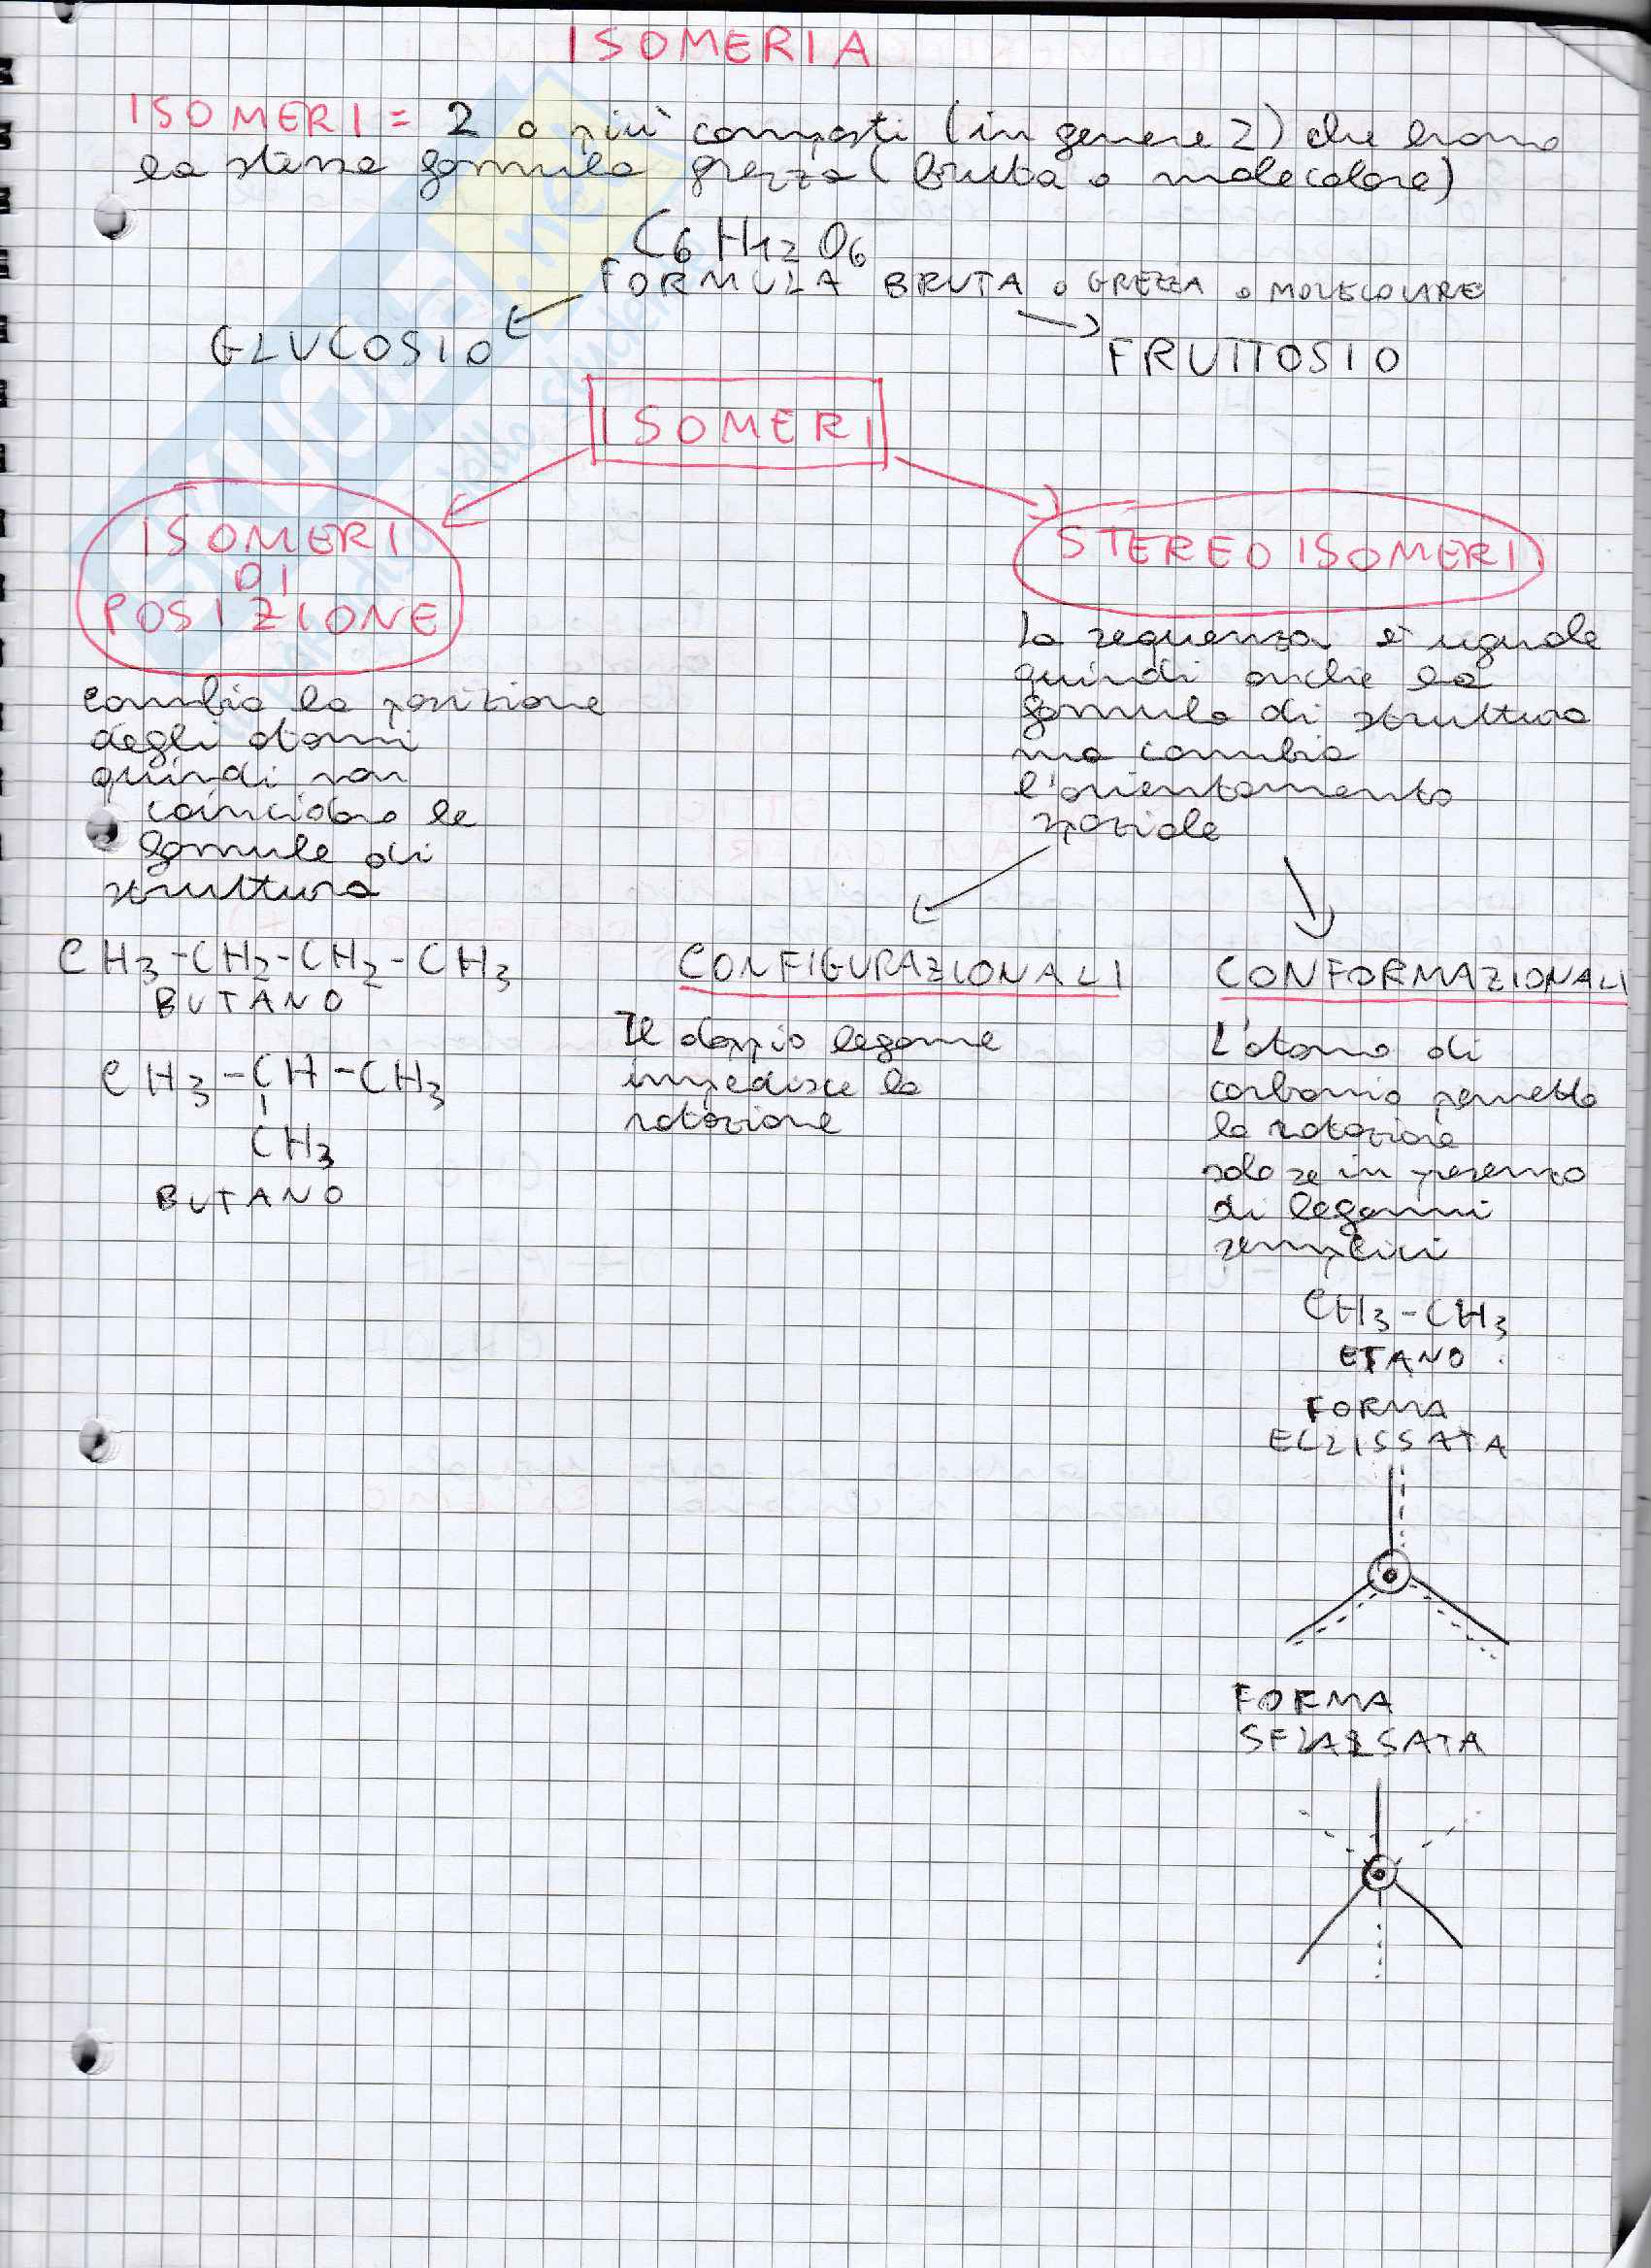 ISOMERIA
ISOMERI = 2 o più composti (in genere 2) che hanno
la stessa formula grezza (bruta o molecolare)
C6 H12 O6
FORMULA BRUTA o GREZZA o MOLECOLARE
GLUCOSIO
FRUTTOSIO
ISOMERI
ISOMERI
DI
POSIZIONE
cambia la posizione
degli atomi
quindi non
coincidono le
formule di
struttura
CH3-CH2-CH2-CH3
BUTANO
CH3-CH-CH3
CH3
BUTANO
STEREOISOMERI
la sequenza è uguale
quindi anche la
formula di struttura
ma cambia
l'orientamento
spaziale
CONFIGURAZIONALI
Il doppio legame
impedisce la
rotazione
CONFORMAZIONALI
L'atomo di
carbonio permette
la rotazione
solo se in presenza
di legami
semplici
CH3-CH3
ETANO
FORMA
ECLISSATA
FORMA
SFALSATA